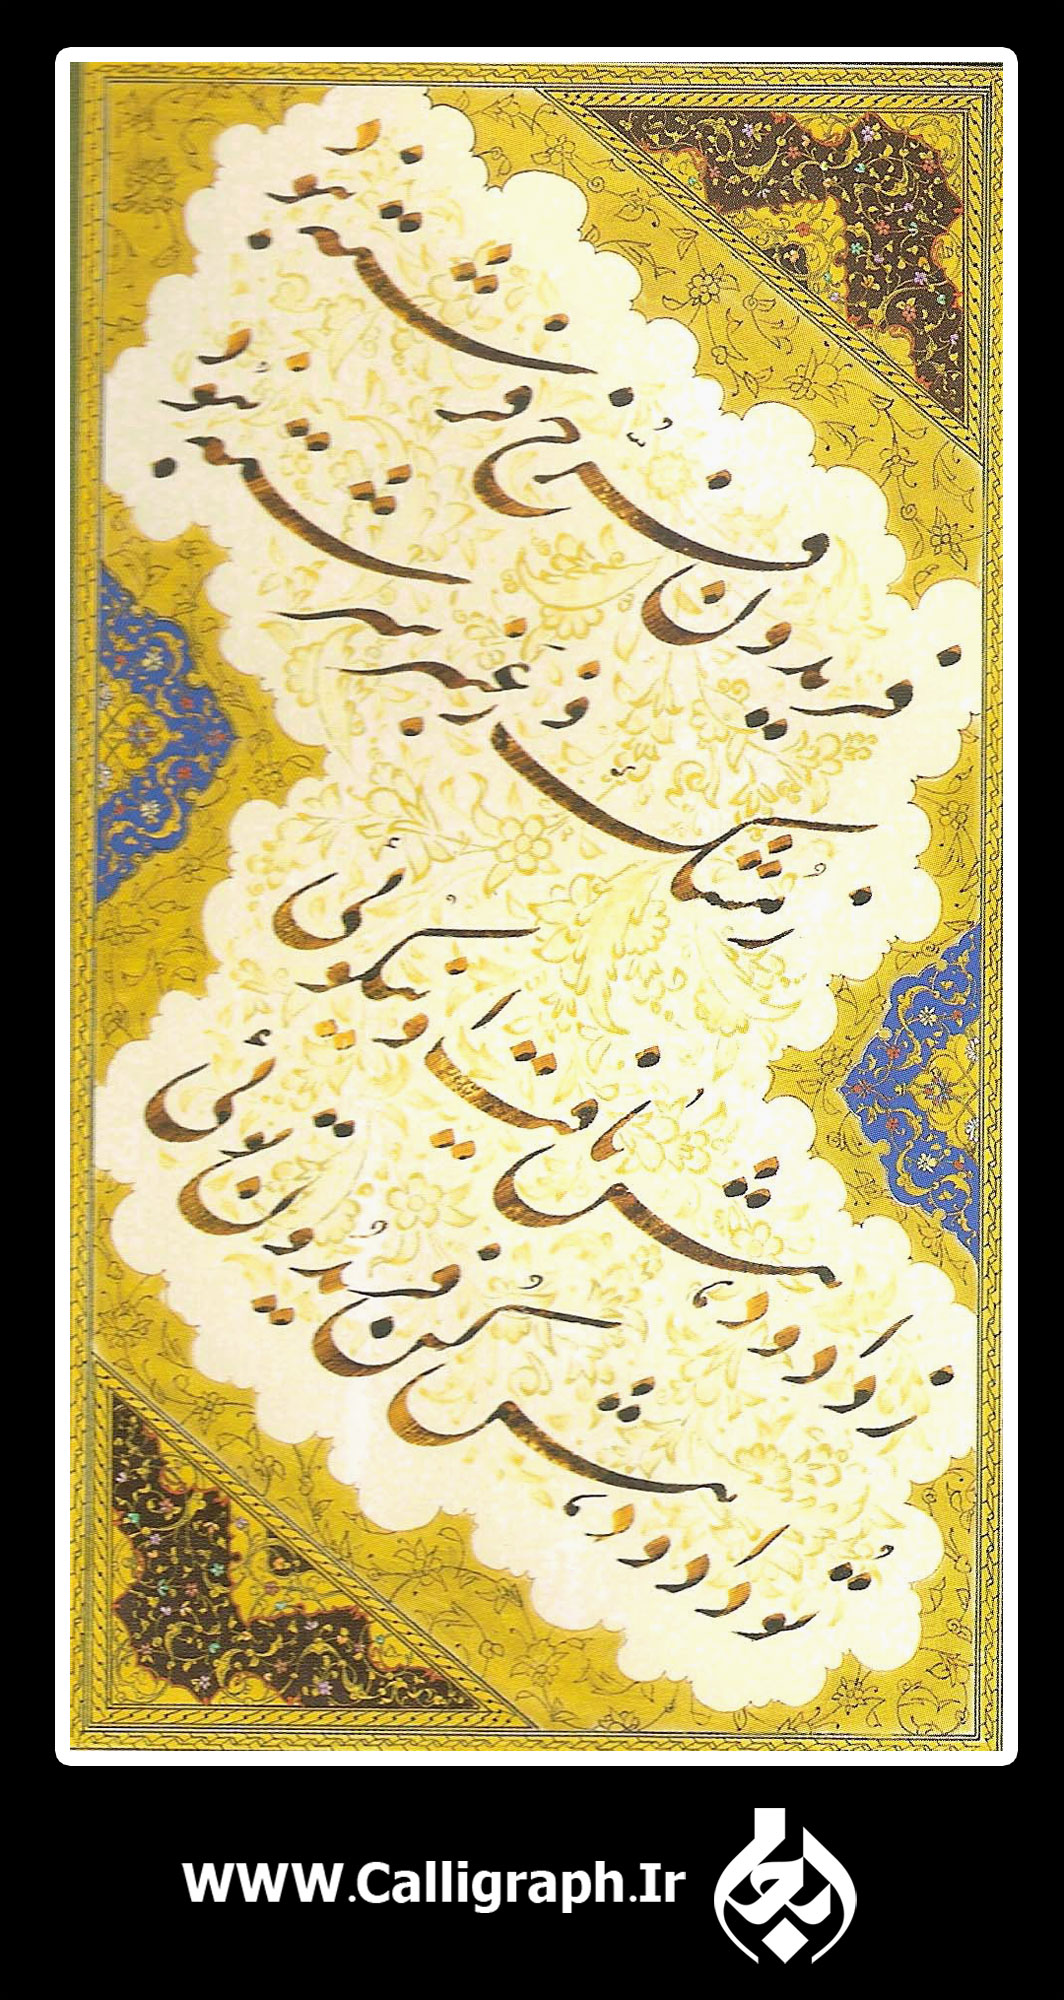 فریدون فرّخ فرشته نبود
ز مُشک و ز عنبر سرشته نبود
ز داد و دهش یافت آن نیکوئی
تُو داد و دهش کُن فریدون توئی
WWW.Calligraph.Ir